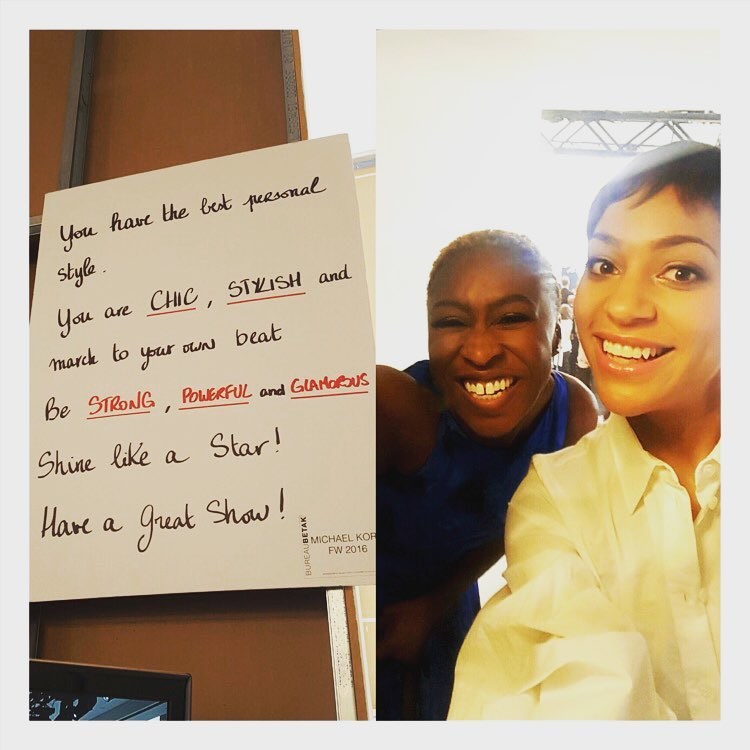 You have the best personal
style.
You are CHIC, STYLISH and
march to your own beat
Be STRONG, POWERFUL and GLAMOROUS
Shine like a Star!
Have a great Show!
BUREAUBETAK
MICHAEL KOR
FW 2016